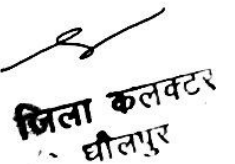 जिला कलक्टर
धौलपुर